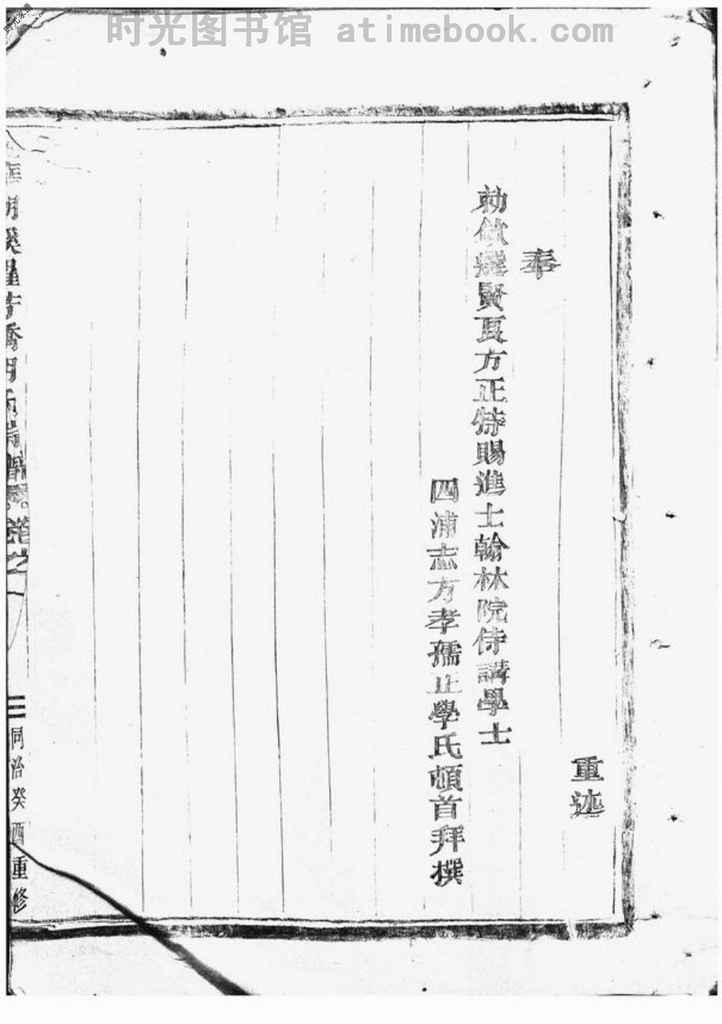 时光图书馆 atimebook.com
重迹
奉
勅敕選賢良方正特賜進士翰林院侍講學士
四浦志方孝孺正學氏頓首拜撰
卷之一
三
同治癸酉重修